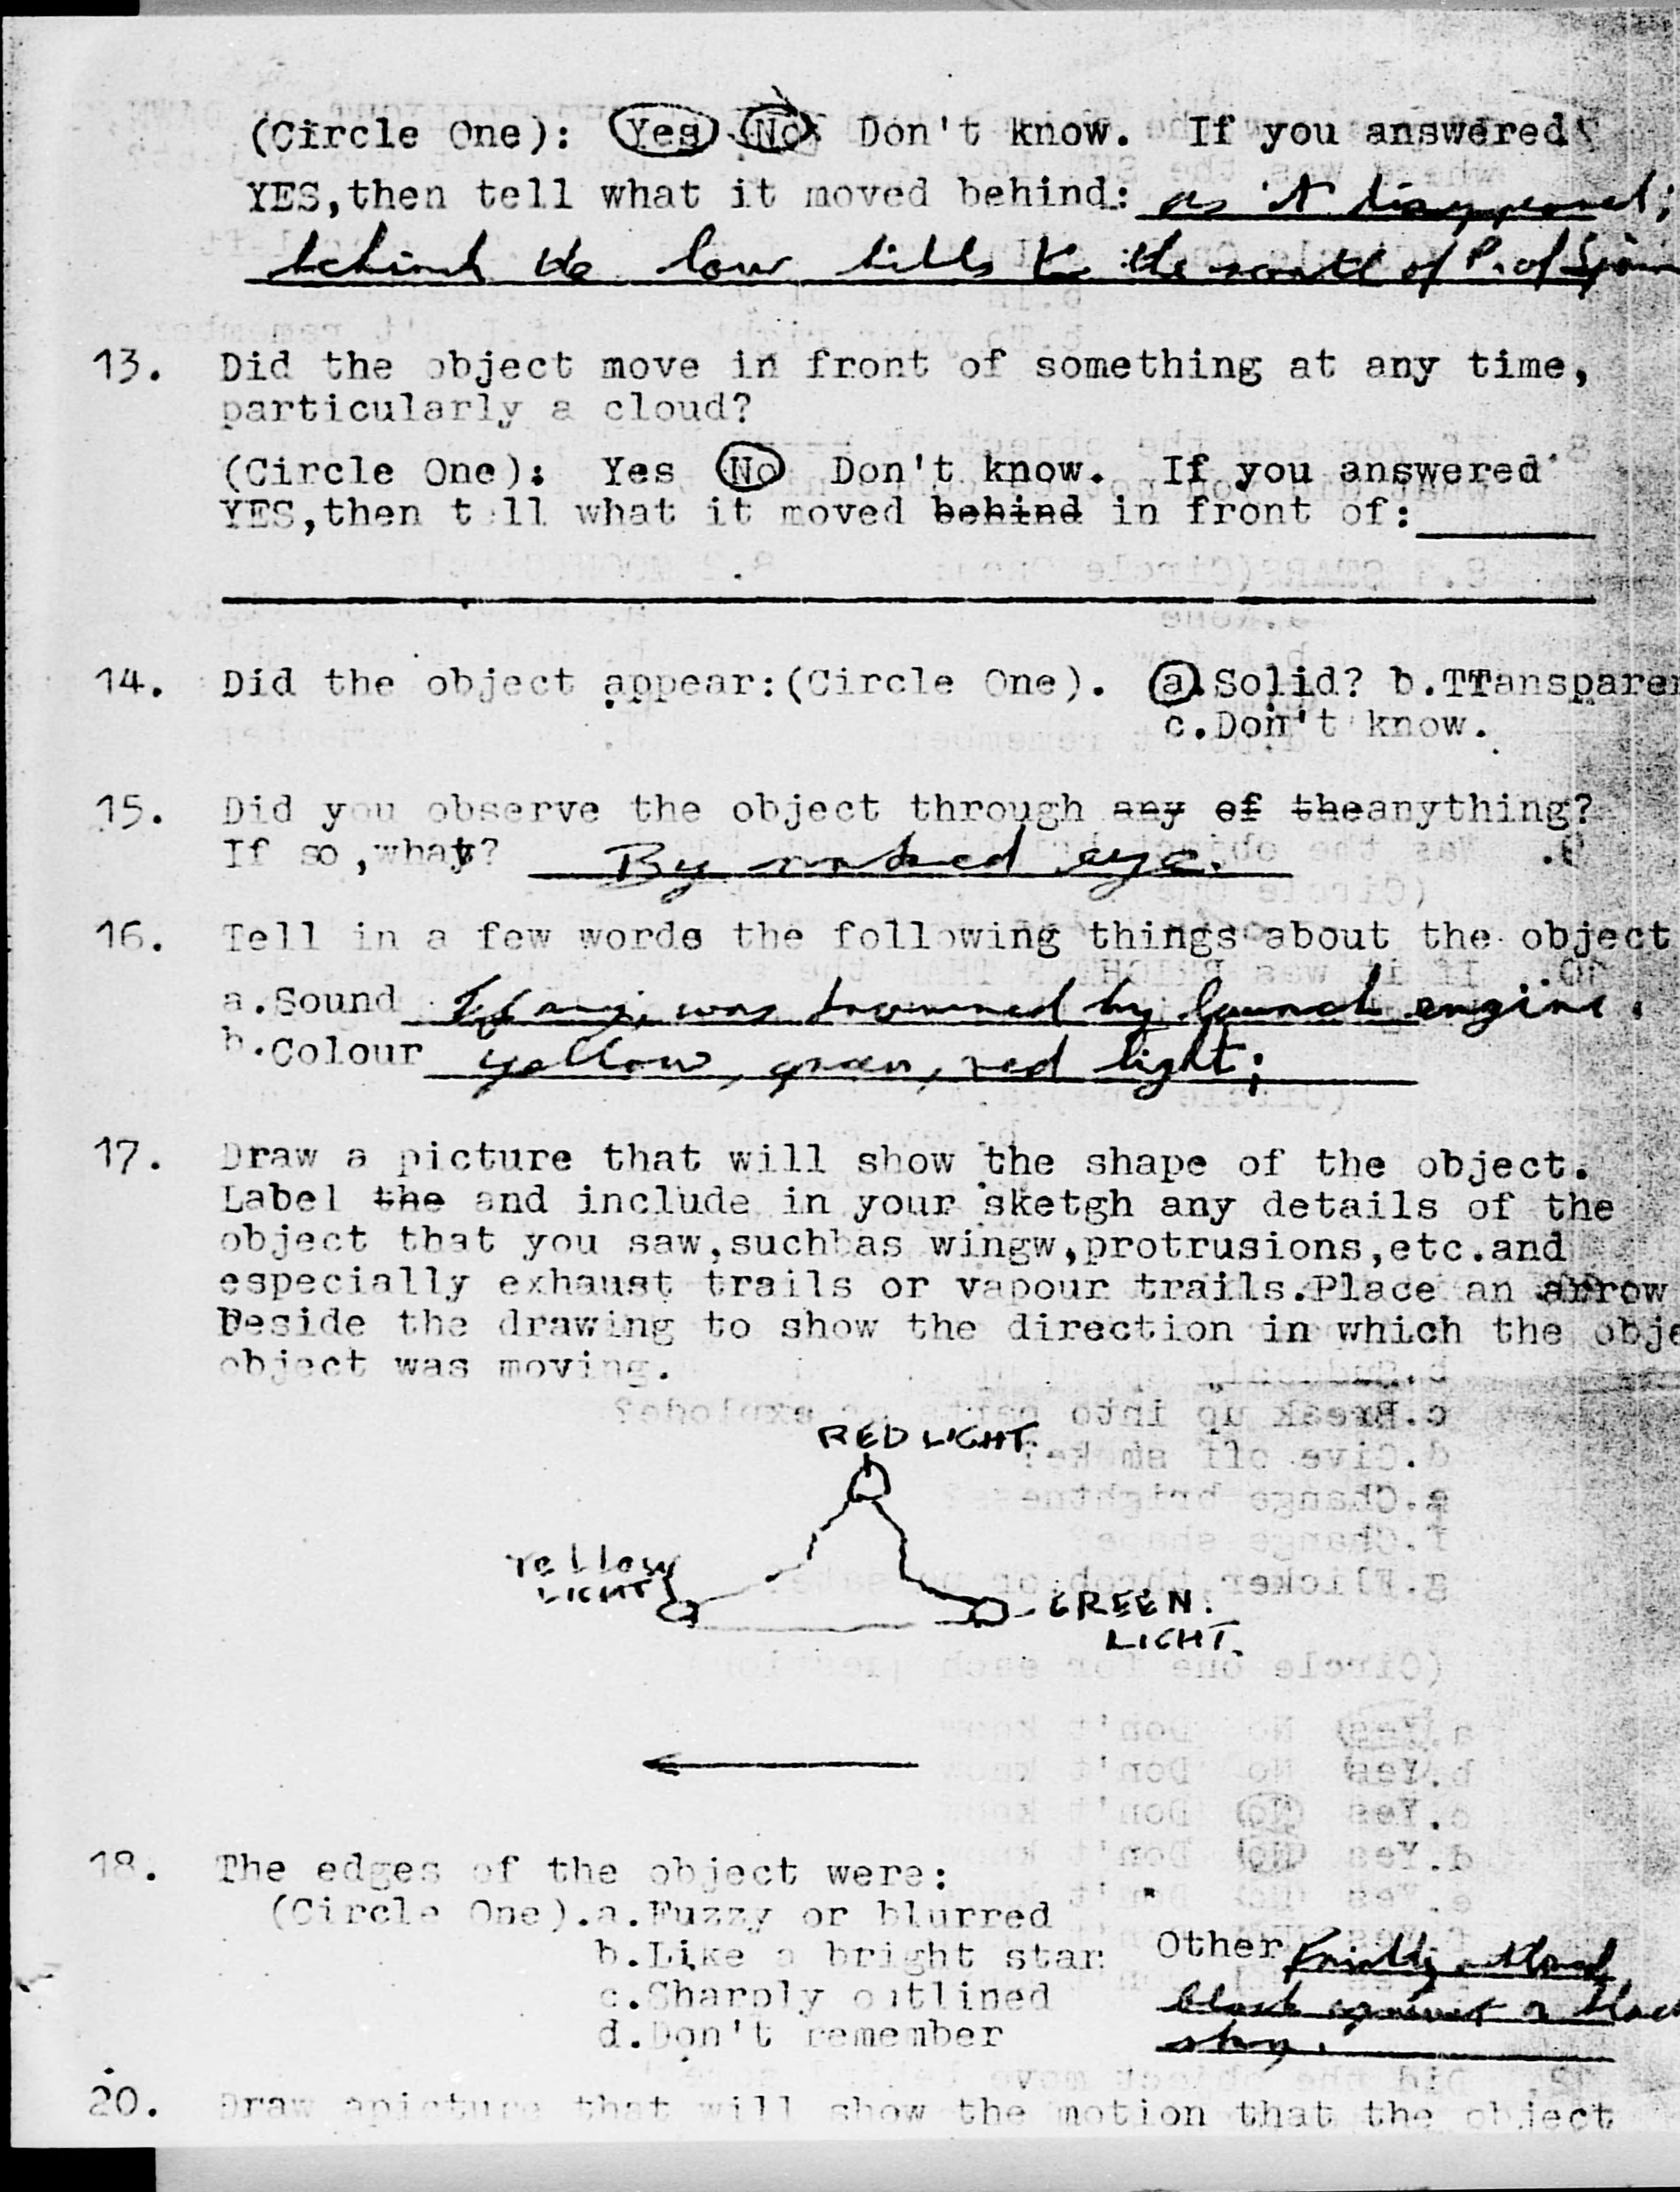 (Circle One): Yes No Don't know. If you answered
YES,then tell what it moved behind: as it disappeared;
behind the low hills to the south of P. of Spain
13. Did the object move in front of something at any time,
particularly a cloud?
(Circle One): Yes No Don't know. If you answered
YES,then tell what it moved behind in front of:
14. Did the object appear:(Circle One). a.Solid? b.TTanspare
c.Don't know.
15. Did you observe the object through any of theanything?
If so,what? By naked eye.
16. Tell in a few words the following things about the object
a.Sound If any, was drowned by launch engine.
b.Colour yellow, green, red light;
17. Draw a picture that will show the shape of the object.
Label the and include in your sketgh any details of the
object that you saw,such as wingw,protrusions,etc.and
especially exhaust trails or vapour trails.Place an arrow
Beside the drawing to show the direction in which the obje
object was moving.
RED LIGHT
Yellow
LIGHT
GREEN.
LIGHT.
18. The edges of the object were:
(Circle One).a.Fuzzy or blurred
b.Like a bright star Other Faintly
c.Sharply outlined black against a black
d.Don't remember sky.
20. Draw apicture that will show the motion that the object